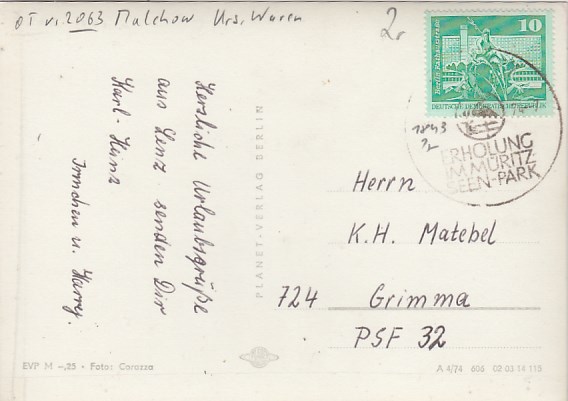 OT v. 2063 Malchow Krs. Waren
2r
Herzliche Urlaubsgrüße
aus Lenz senden Dir
Karl-Heinz
Irmchen u. Harry.
PLANET-VERLAG BERLIN
10
Berlin, Rathausstraße
DEUTSCHE DEMOKRATISCHE REPUBLIK
1843
ERHOLUNG
IM MÜRITZ
SEEN-PARK
Herrn
K.H. Matebel
724 Grimma
PSF 32
EVP M –,25 • Foto: Corazza
A 4/74 606 02 03 14 115